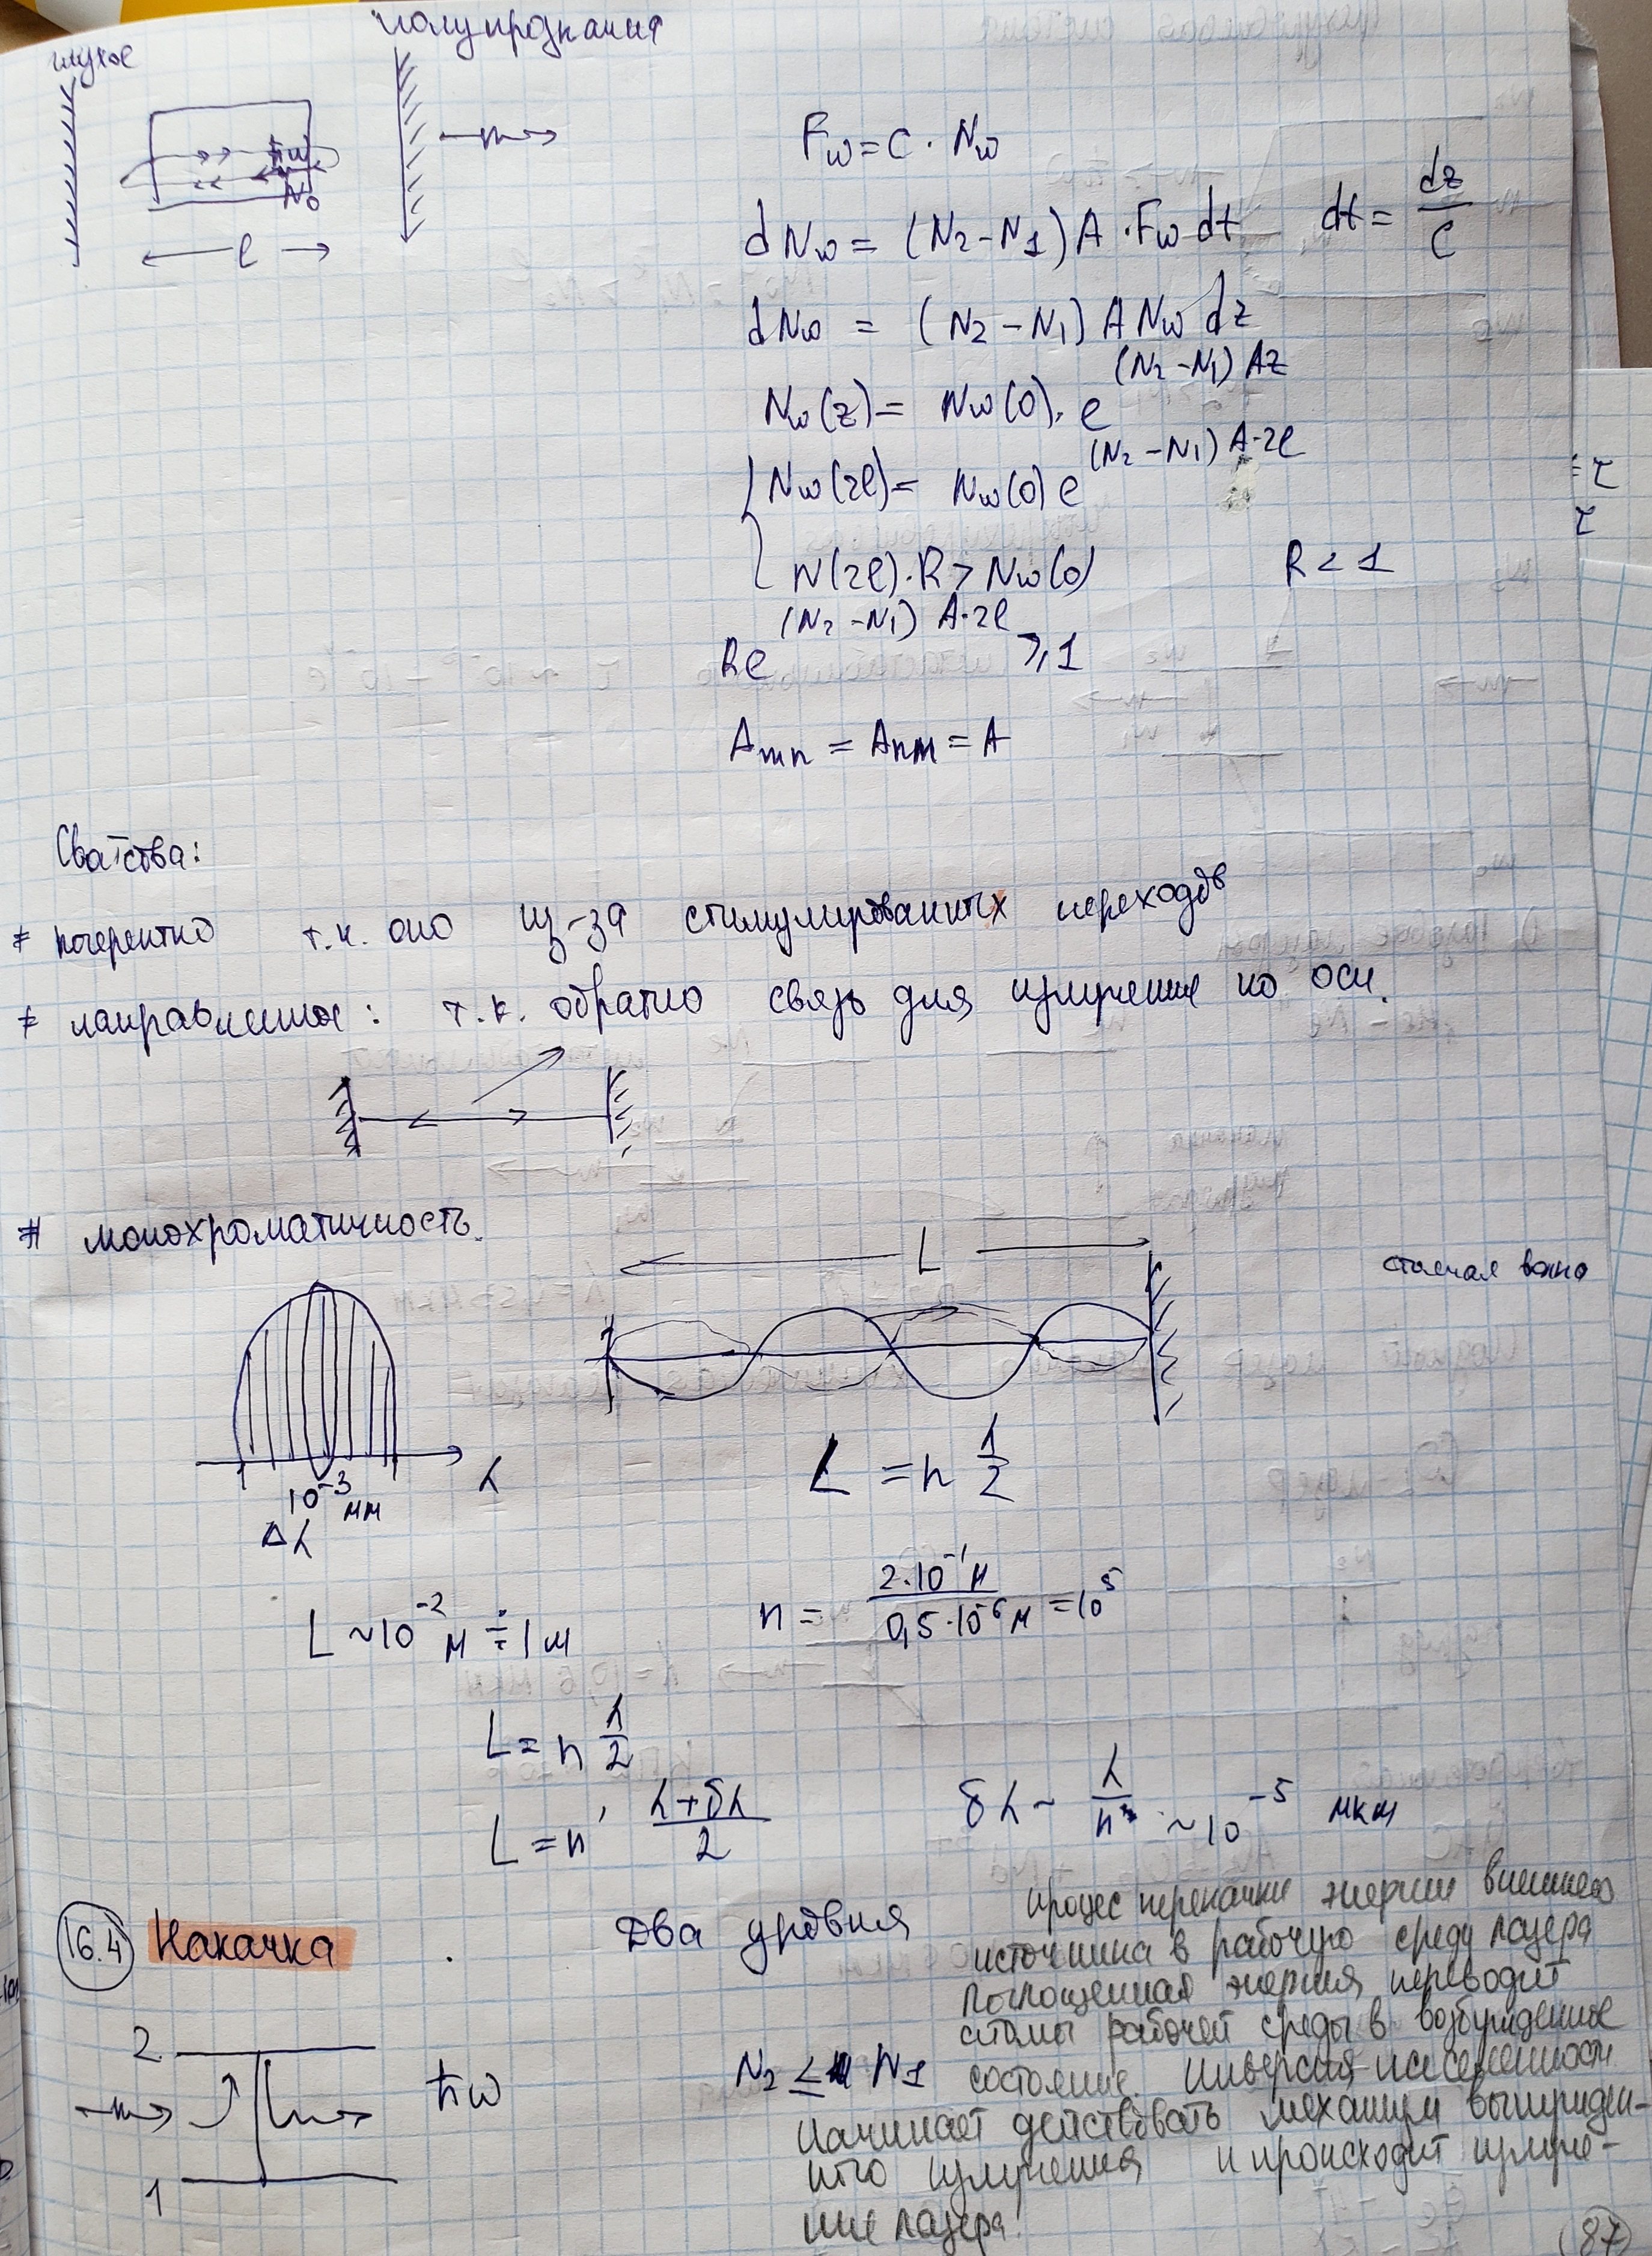 глухое
полупрозначия
ħω
N₀
l
F_ω = C · N_ω
dN_ω = (N₂ - N₁) A · F_ω dt dt = dz/C
dN_ω = (N₂ - N₁) A N_ω dz
N_ω(z) = N_ω(0) · e^((N₂ - N₁) Az)
N_ω(2l) = N_ω(0) e^((N₂ - N₁) A·2l)
N(2l)·R > N_ω(0) R < 1
Re^((N₂ - N₁) A·2l) ⩾ 1
A_mn = A_nm = A
Сватства:
* когерентно т.к. оно из-за стимулированных переходов
* направленное: т.к. обратно связь для излучение по оси.
* монохроматичность.
L
стоячая волна
λ
10⁻³ мм
Δλ
L = n 1/2
L ~ 10⁻² м ÷ 1 м
n = 2·10⁻¹ м / 0,5·10⁻⁶ м = 10⁵
L = n λ/2
L = n' (λ + δλ)/2
δλ ~ λ/n ~ 10⁻⁵ мкм
16.4 Накачка . Два уровня
процес перекачки энергии внешнего
источника в рабочую среду лазера
Поглощенная энергия переводит
атомы рабочей среды в возбужденное
состояние. Инверсия населенности
2
ħω
N₂ ≤ N₁
1
Начинает действовать механизм вынужден-
ного излучения и происходит излуче-
ние лазера!
87
= τ
τ